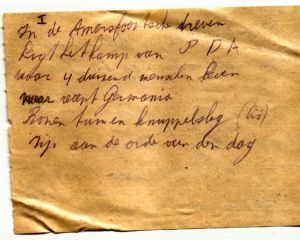 I
In de Amersfoortsche dreven
Ligt het kamp van P D A
waar 4 duizend menschen leven
Germania
knuppelslag (bis)
zijn aan de orde van den dag